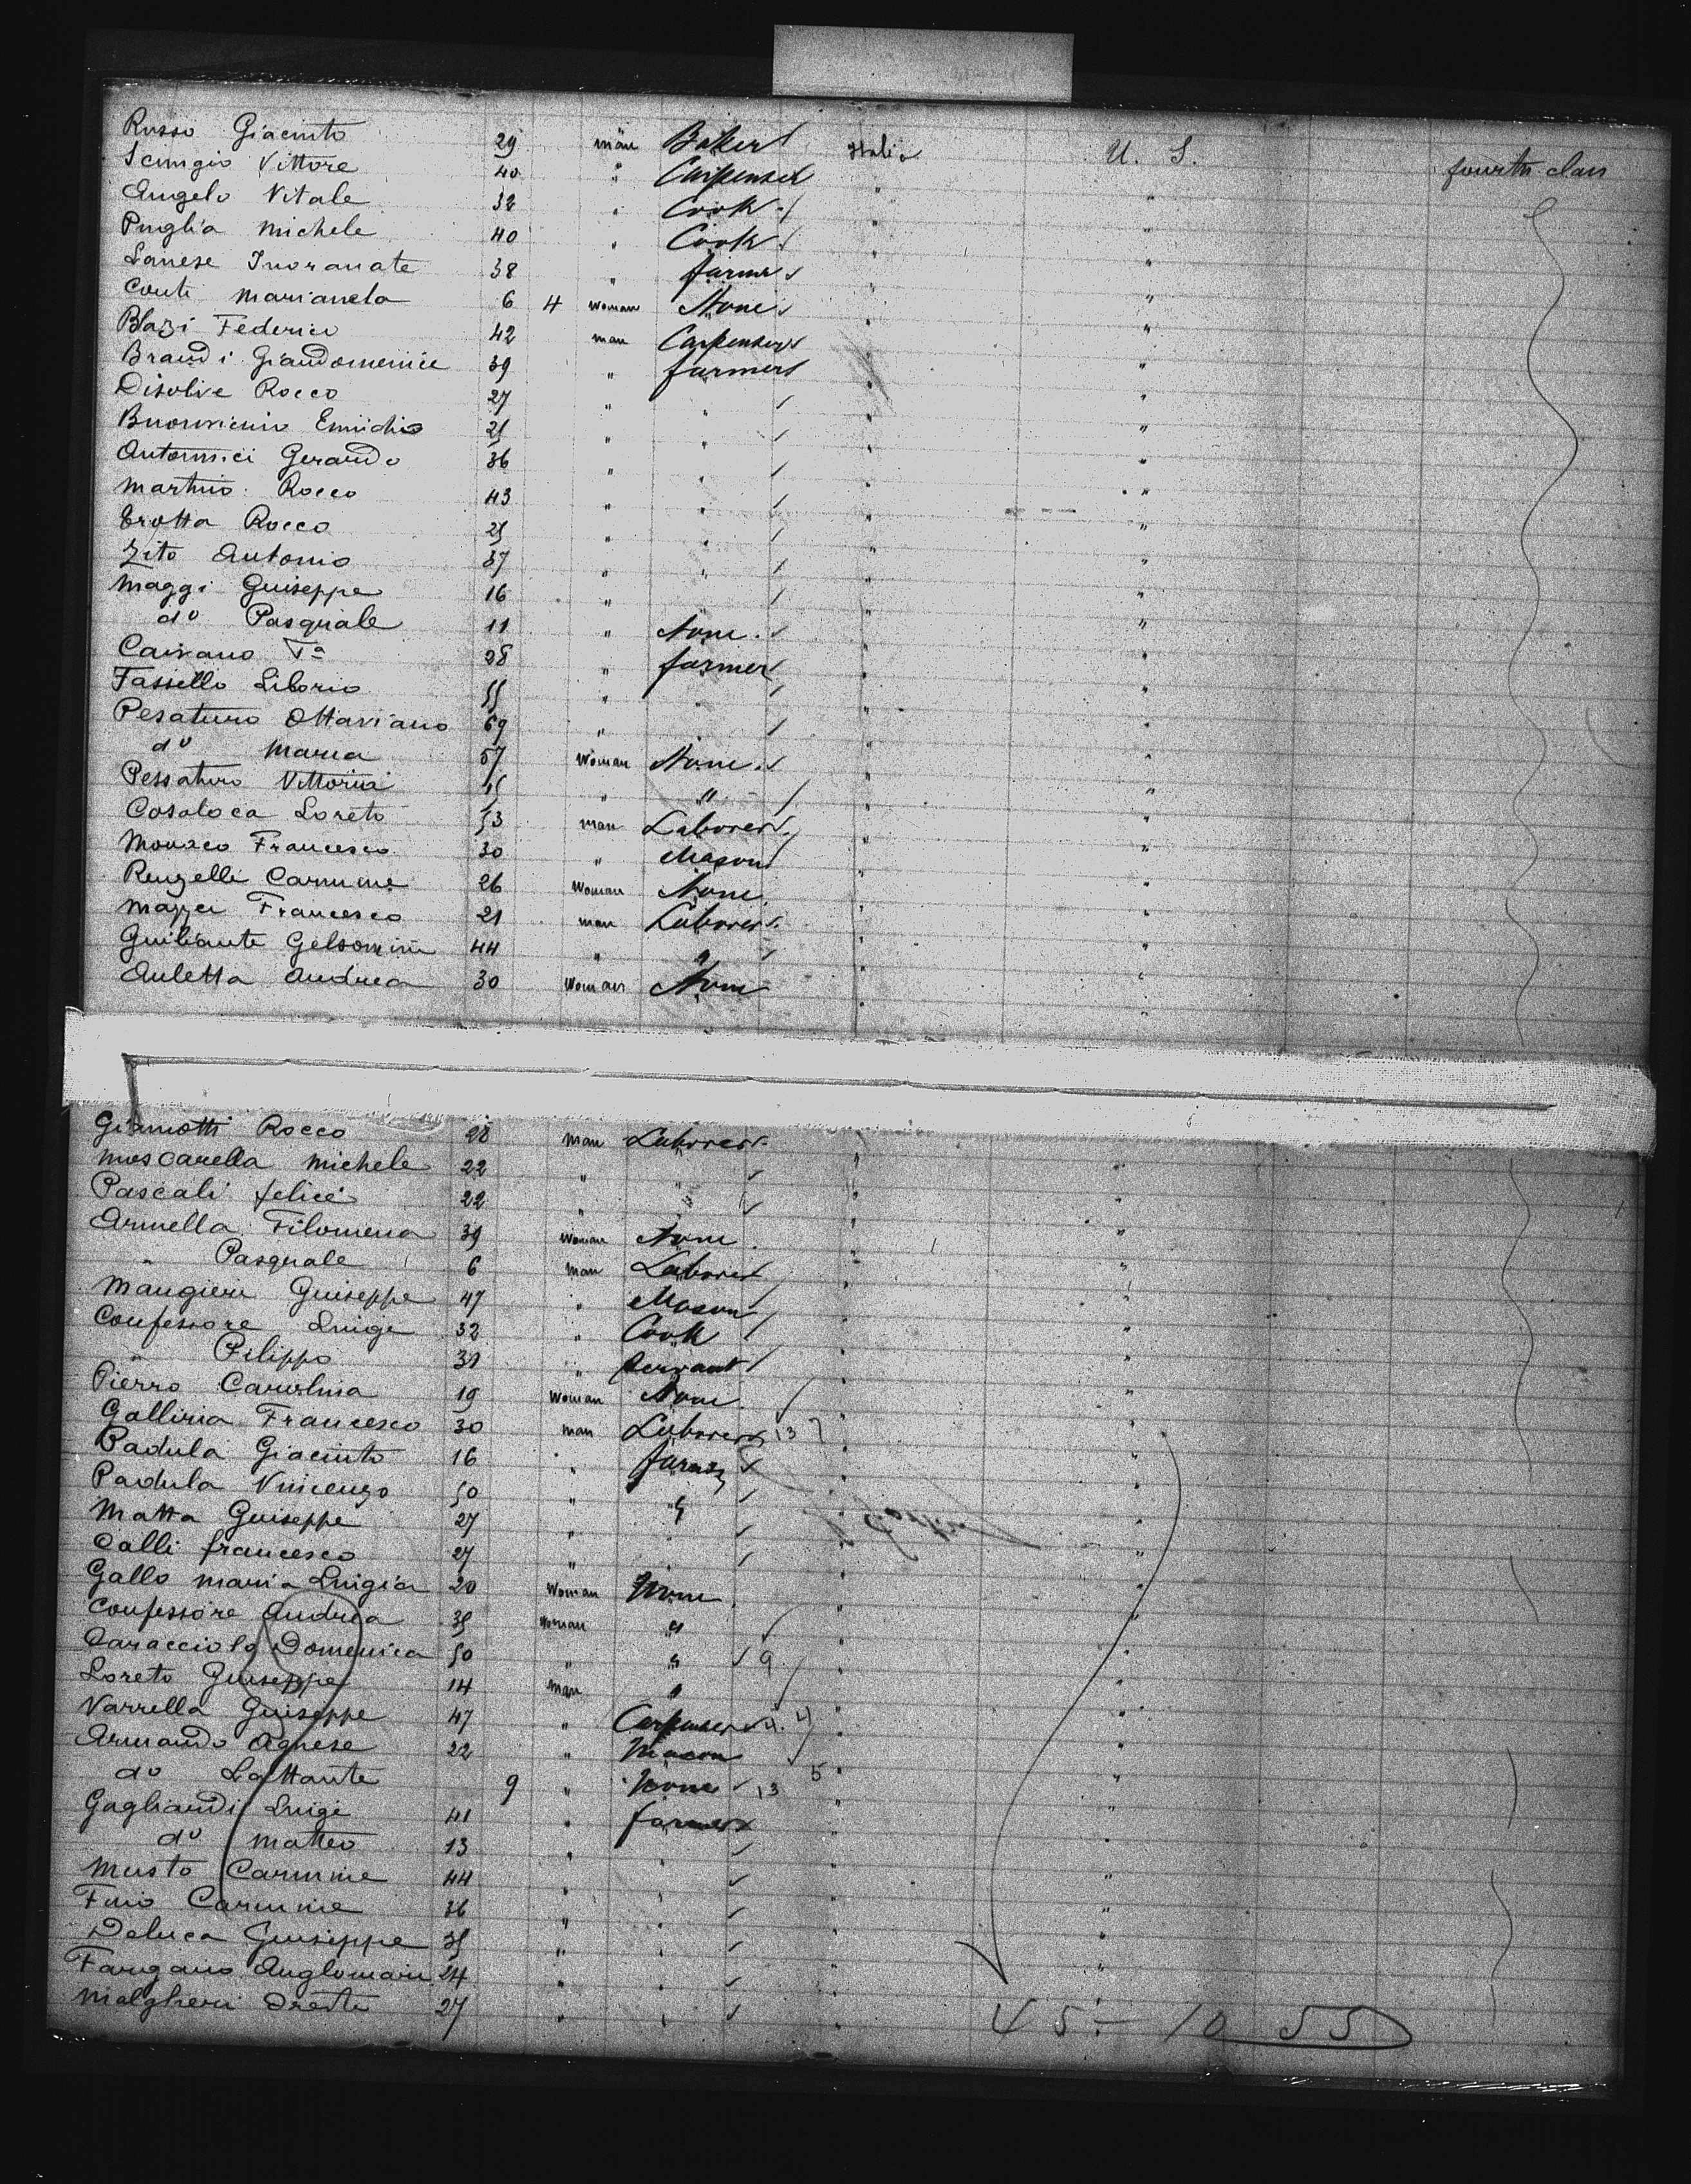 Russo Giacinto 29 man Baker Italia U. S. fourth class
Scinigio Vittore 40 " Carpenter " "
Angelo Vitale 32 " Cook " "
Puglia Michele 40 " Cook " "
Lanese 38 " farmer " "
Conti Marianela 6 4 Woman None " "
Blazi Federico 42 man Carpenter " "
Brandi Giandomenico 39 " farmer " "
Disolive Rocco 27 " " " "
Buonvicino Emidio 21 " " " "
Gerardo 36 " " " "
Martino Rocco 43 " " " "
Trotta Rocco 25 " " " "
Zito Antonio 37 " " " "
Maggi Guiseppe 16 " " " "
do Pasquale 11 " None " "
Caivano Fa 28 " farmer " "
Fassello Liborio 55 " " " "
Pesaturo Ottaviano 69 " " " "
do Maria 57 Woman None " "
Pessaturo Vittoria " " " "
Cosaloca Loreto 53 man Laborer " "
Monaco Francesco 30 " Mason " "
Renzelli Carmine 26 Woman None " "
Mazzei Francesco 21 man Laborer " "
Guiliante Gelsomini 44 " " " "
Auletta Andrea 30 Woman None " "
Giannotti Rocco 28 man Laborer "
Moscarella Michele 22 " " " "
Pascali felice 22 " " " "
Armella Filomena 39 Woman None " "
" Pasquale 6 man Laborer " "
Mangieri Guiseppe 47 " Mason " "
Confessore Luige 32 " Cook " "
" Pilippo 31 " Servant " "
Pierro Carolina 19 Woman None " "
Galliria Francesco 30 man Laborer 13 " "
Padula Giacinto 16 " farmer " "
Padula Vincenzo 50 " " " "
Matta Guiseppe 27 " " "
Calli francesco 27 " " "
Gallo Maria Luigia 20 Woman None " "
Confessore Andrea 35 Woman " " "
Caracciolo Domenica 50 " " 9 " "
Loreto Guiseppe 14 man " " "
Varrella Guiseppe 47 " Carpenter 4. 4 " "
Armando Agnese 22 " Mason " "
do Lattante 9 " None 13 5 " "
Gagliardi Luigi 41 " farmer " "
do Matteo 13 " " "
Musto Carmine 44 " " "
Fino Carmine 36 " " " "
Deluca Guiseppe 35 " " " "
Fangano Anglomari 24 " " " "
Malgheri Oreste 27 " " "
45 - 10 55